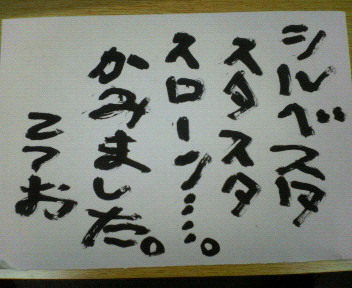 シルベスタ
スタスタ
スローン……。
かみました。
てつお